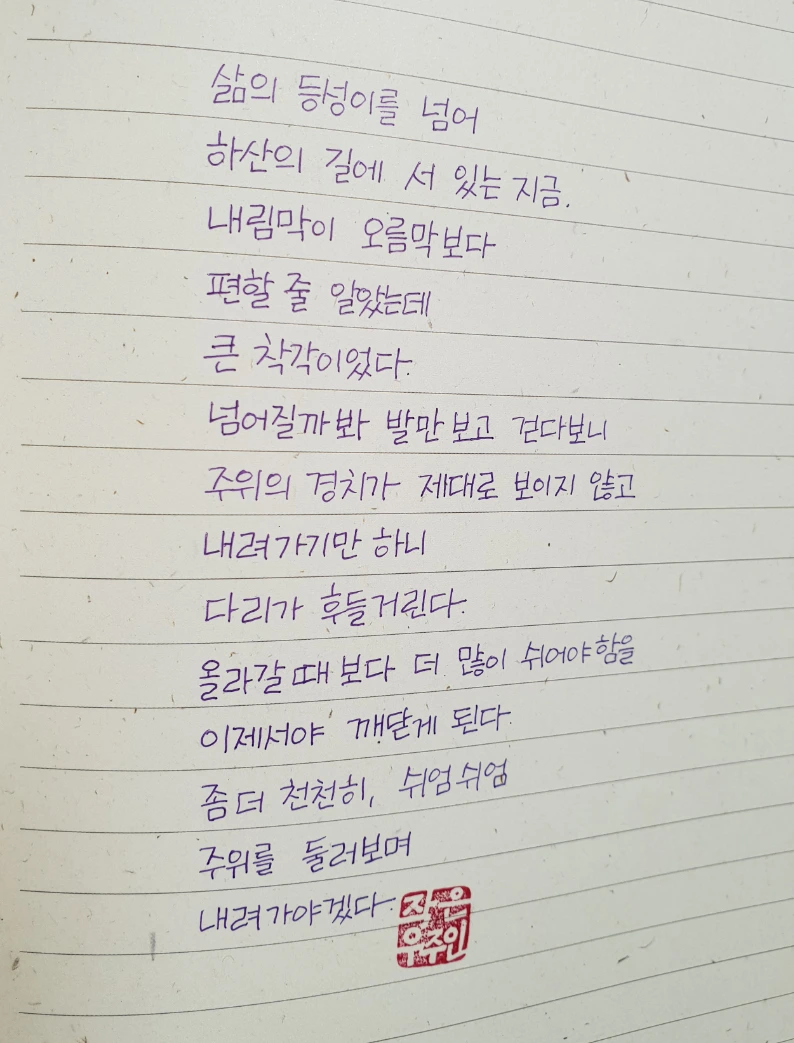 삶의 등성이를 넘어
하산의 길에 서 있는 지금.
내림막이 오름막보다
편할 줄 알았는데
큰 착각이었다.
넘어질까봐 발만 보고 걷다보니
주위의 경치가 제대로 보이지 않고
내려가기만 하니
다리가 후들거린다.
올라갈 때 보다 더 많이 쉬어야 함을
이제서야 깨닫게 된다.
좀 더 천천히, 쉬엄쉬엄
주위를 둘러보며
내려가야겠다.
작은
우주인